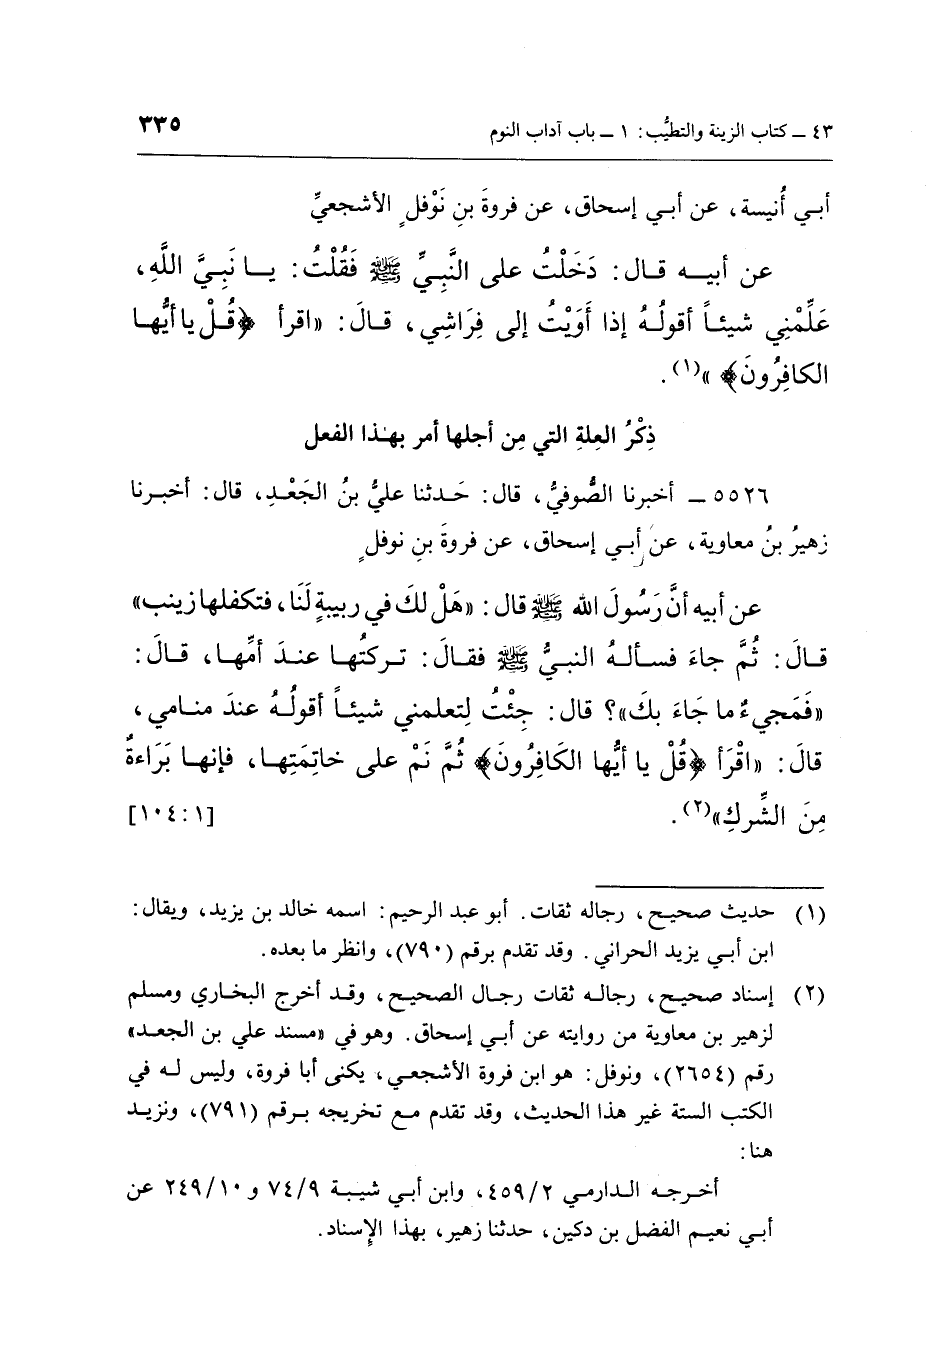 ٤٣ ــ كتاب الزينة والتطيُّب: ١ ــ باب آداب النوم ٣٣٥
أبـي أُنيسة، عن أبـي إسحاق، عن فروةَ بنِ نَوْفلٍ الأشجعيِّ
عن أبيـه قـال: دَخَلْتُ على النَّبِـيِّ ﷺ فَقُلْتُ: يـا نَبِـيَّ اللَّهِ،
عَلِّمْنِي شيئـاً أقولُـهُ إذا أَوَيْتُ إلى فِرَاشِي، قـالَ: «اقرأ ﴿قُـلْ يا أيُّهـا
الكافِرُونَ﴾»(١).
ذِكْرُ العِلةِ التي مِن أجلها أمر بهٰذا الفعل
٥٥٢٦ ــ أخبرنا الصُّوفيُّ، قال: حَـدثنا عليُّ بنُ الجَعْـدِ، قال: أخبـرنا
زهيرُ بنُ معاوية، عن أبـي إسحاق، عن فروةَ بنِ نوفلٍ
عن أبيه أنَّ رَسُولَ الله ﷺ قال: «هَلْ لكَ في ربيبةٍ لَنَا، فتكفلها زينب»
قـالَ: ثُمَّ جاءَ فسـألـهُ النبـيُّ ﷺ فقـالَ: تـركتُهـا عنـدَ أمِّهـا، قـالَ:
«فَمَجيءٌ ما جَاءَ بكَ»؟ قال: جِئْتُ لِتعلمني شيئـاً أقولُـهُ عندَ منـامي،
قالَ: «اقْرَأ ﴿قُلْ يا أيُّها الكَافِرُونَ﴾ ثُمَّ نَمْ على خاتِمَتِهـا، فإنهـا بَرَاءةٌ
مِنَ الشِّركِ»(٢). [١:١٠٤]
(١) حديث صحيح، رجاله ثقات. أبو عبد الرحيم: اسمه خالد بن يزيد، ويقال:
ابن أبـي يزيد الحراني. وقد تقدم برقم (٧٩٠)، وانظر ما بعده.
(٢) إسناد صحيح، رجالـه ثقات رجـال الصحيـح، وقـد أخرج البخـاري ومسلم
لزهير بن معاوية من روايته عن أبـي إسحاق. وهو في «مسند علي بن الجعـد»
رقم (٢٦٥٤)، ونوفل: هو ابن فروة الأشجعـي، يكنى أبا فروة، وليس لـه في
الكتب الستة غير هذا الحديث، وقد تقدم مـع تخريجه بـرقم (٧٩١)، ونزيـد
هنا:
أخـرجـه الـدارمـي ٤٥٩/٢، وابن أبـي شيبـة ٧٤/٩ و ٢٤٩/١٠ عن
أبـي نعيـم الفضل بن دكين، حدثنا زهير، بهذا الإسناد.